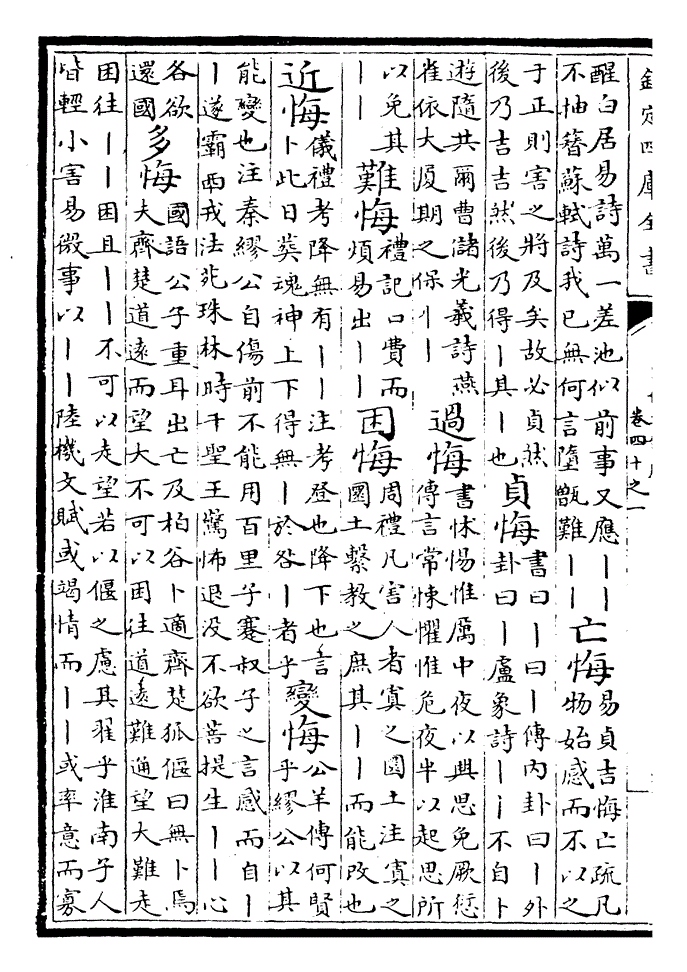 欽定四庫全書
卷四十之一
醒白居易詩萬一差池似前事又應丨丨
不抽簪蘇軾詩我已無何言墮甑難丨丨
亡悔
易貞吉悔亡疏凡
物始感而不以之
于正則害之將及矣故必貞然
後乃吉吉然後乃得丨其丨也
貞悔
書曰丨曰丨傳內卦曰丨外
卦曰丨盧象詩丨丨不自卜
遊隨共爾曹儲光羲詩燕
雀依大厦期之保丨丨
過悔
書怵惕惟厲中夜以興思免厥愆
傳言常悚懼惟危夜半以起思所
以免其
丨丨
難悔
禮記口費而
煩易出丨丨
困悔
周禮凡害人者寘之圜土注寘之
圜土繫教之庶其丨丨而能改也
近悔
儀禮考降無有丨丨注考登也降下也言
卜此日葬魂神上下得無丨於咎丨者乎
變悔
公羊傳何賢
乎繆公以其
能變也注秦繆公自傷前不能用百里子蹇叔子之言感而自丨
丨遂霸西戎法苑珠林時千聖王驚怖退没不欲菩提生丨丨心
各欲
還國
多悔
國語公子重耳出亡及柏谷卜適齊楚狐偃曰無卜焉
夫齊楚道遠而望大不可以困往道遠難通望大難走
困往丨丨困且丨丨不可以走望若以偃之慮其翟乎淮南子人
皆輕小害易微事以丨丨陸機文賦或竭情而丨丨或率意而寡